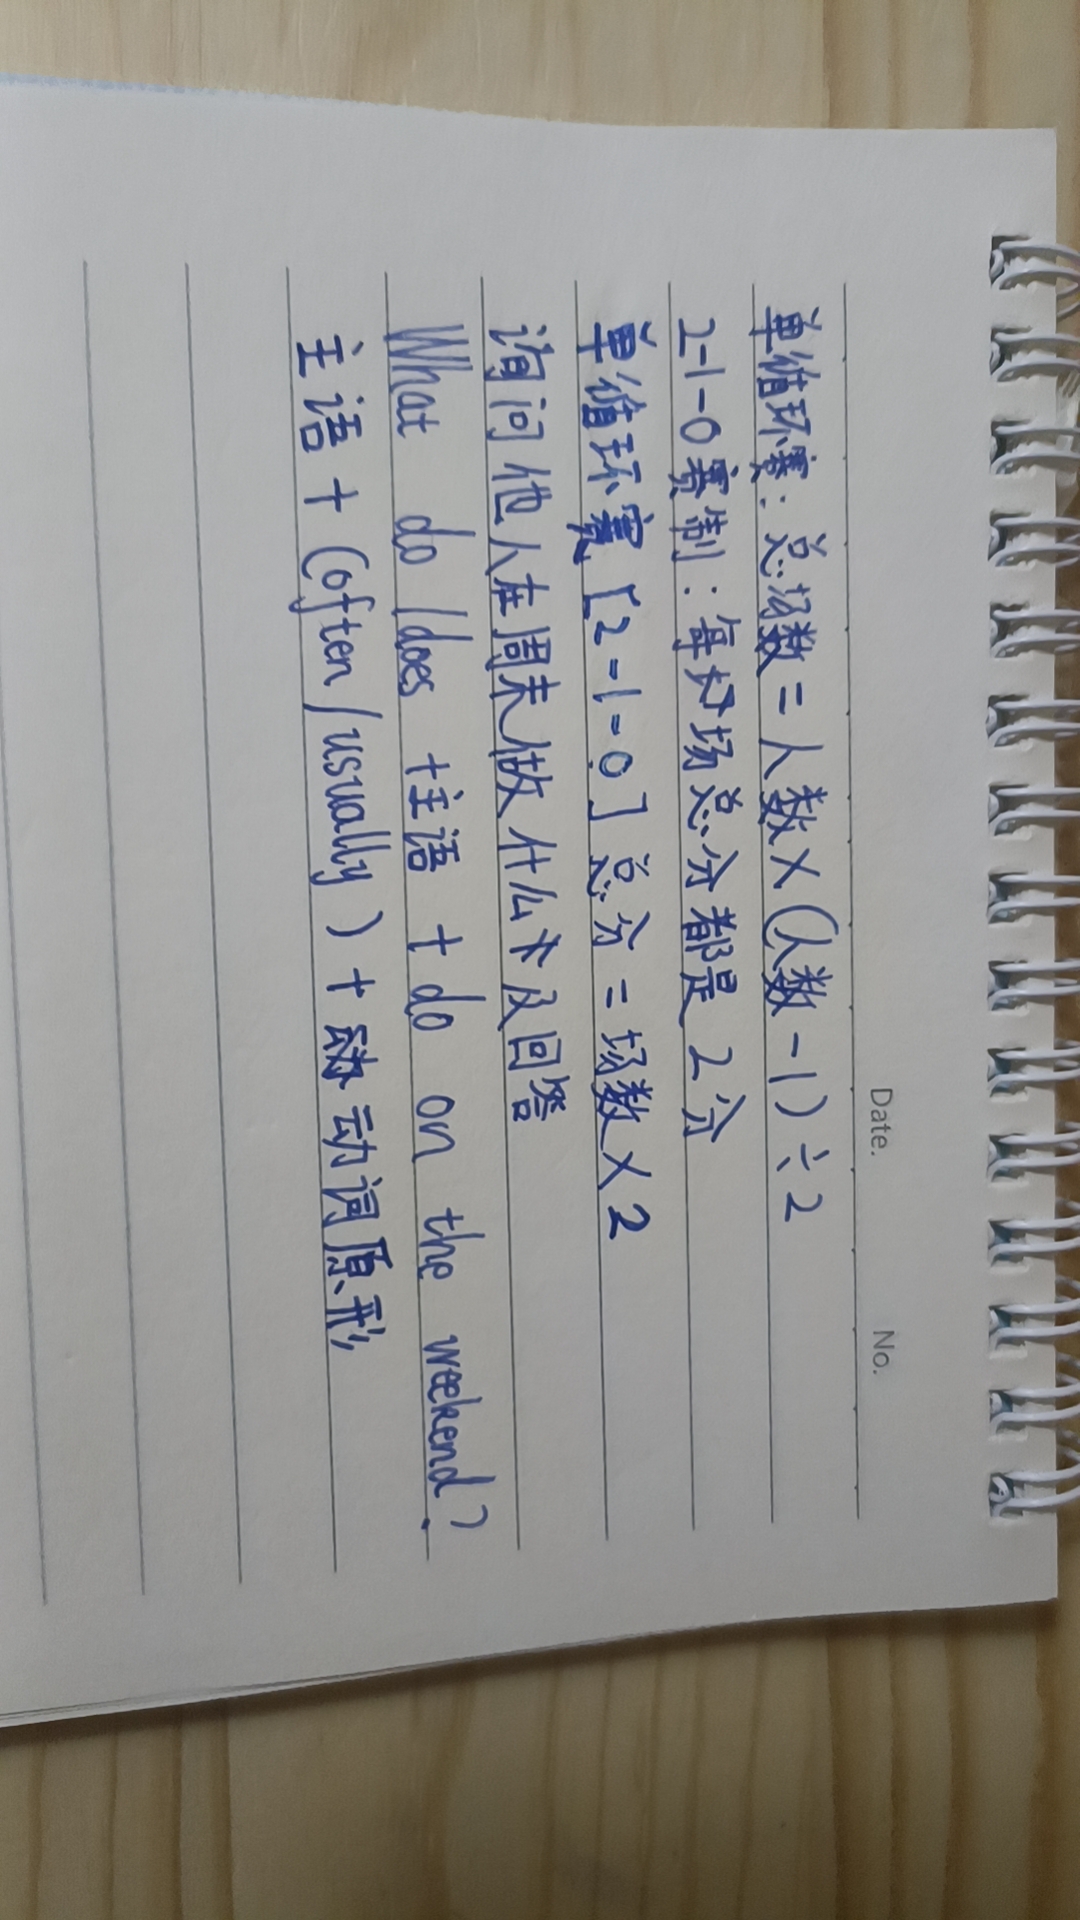 Date. No.
单循环赛：总场数=人数×(人数-1)÷2
2-1-0赛制：每场总分都是2分
单循环赛[2-1-0]总分=场数×2
询问他人在周末做什么及回答
What do/does +主语+do on the weekend?
主语+(often/usually)+动词原形